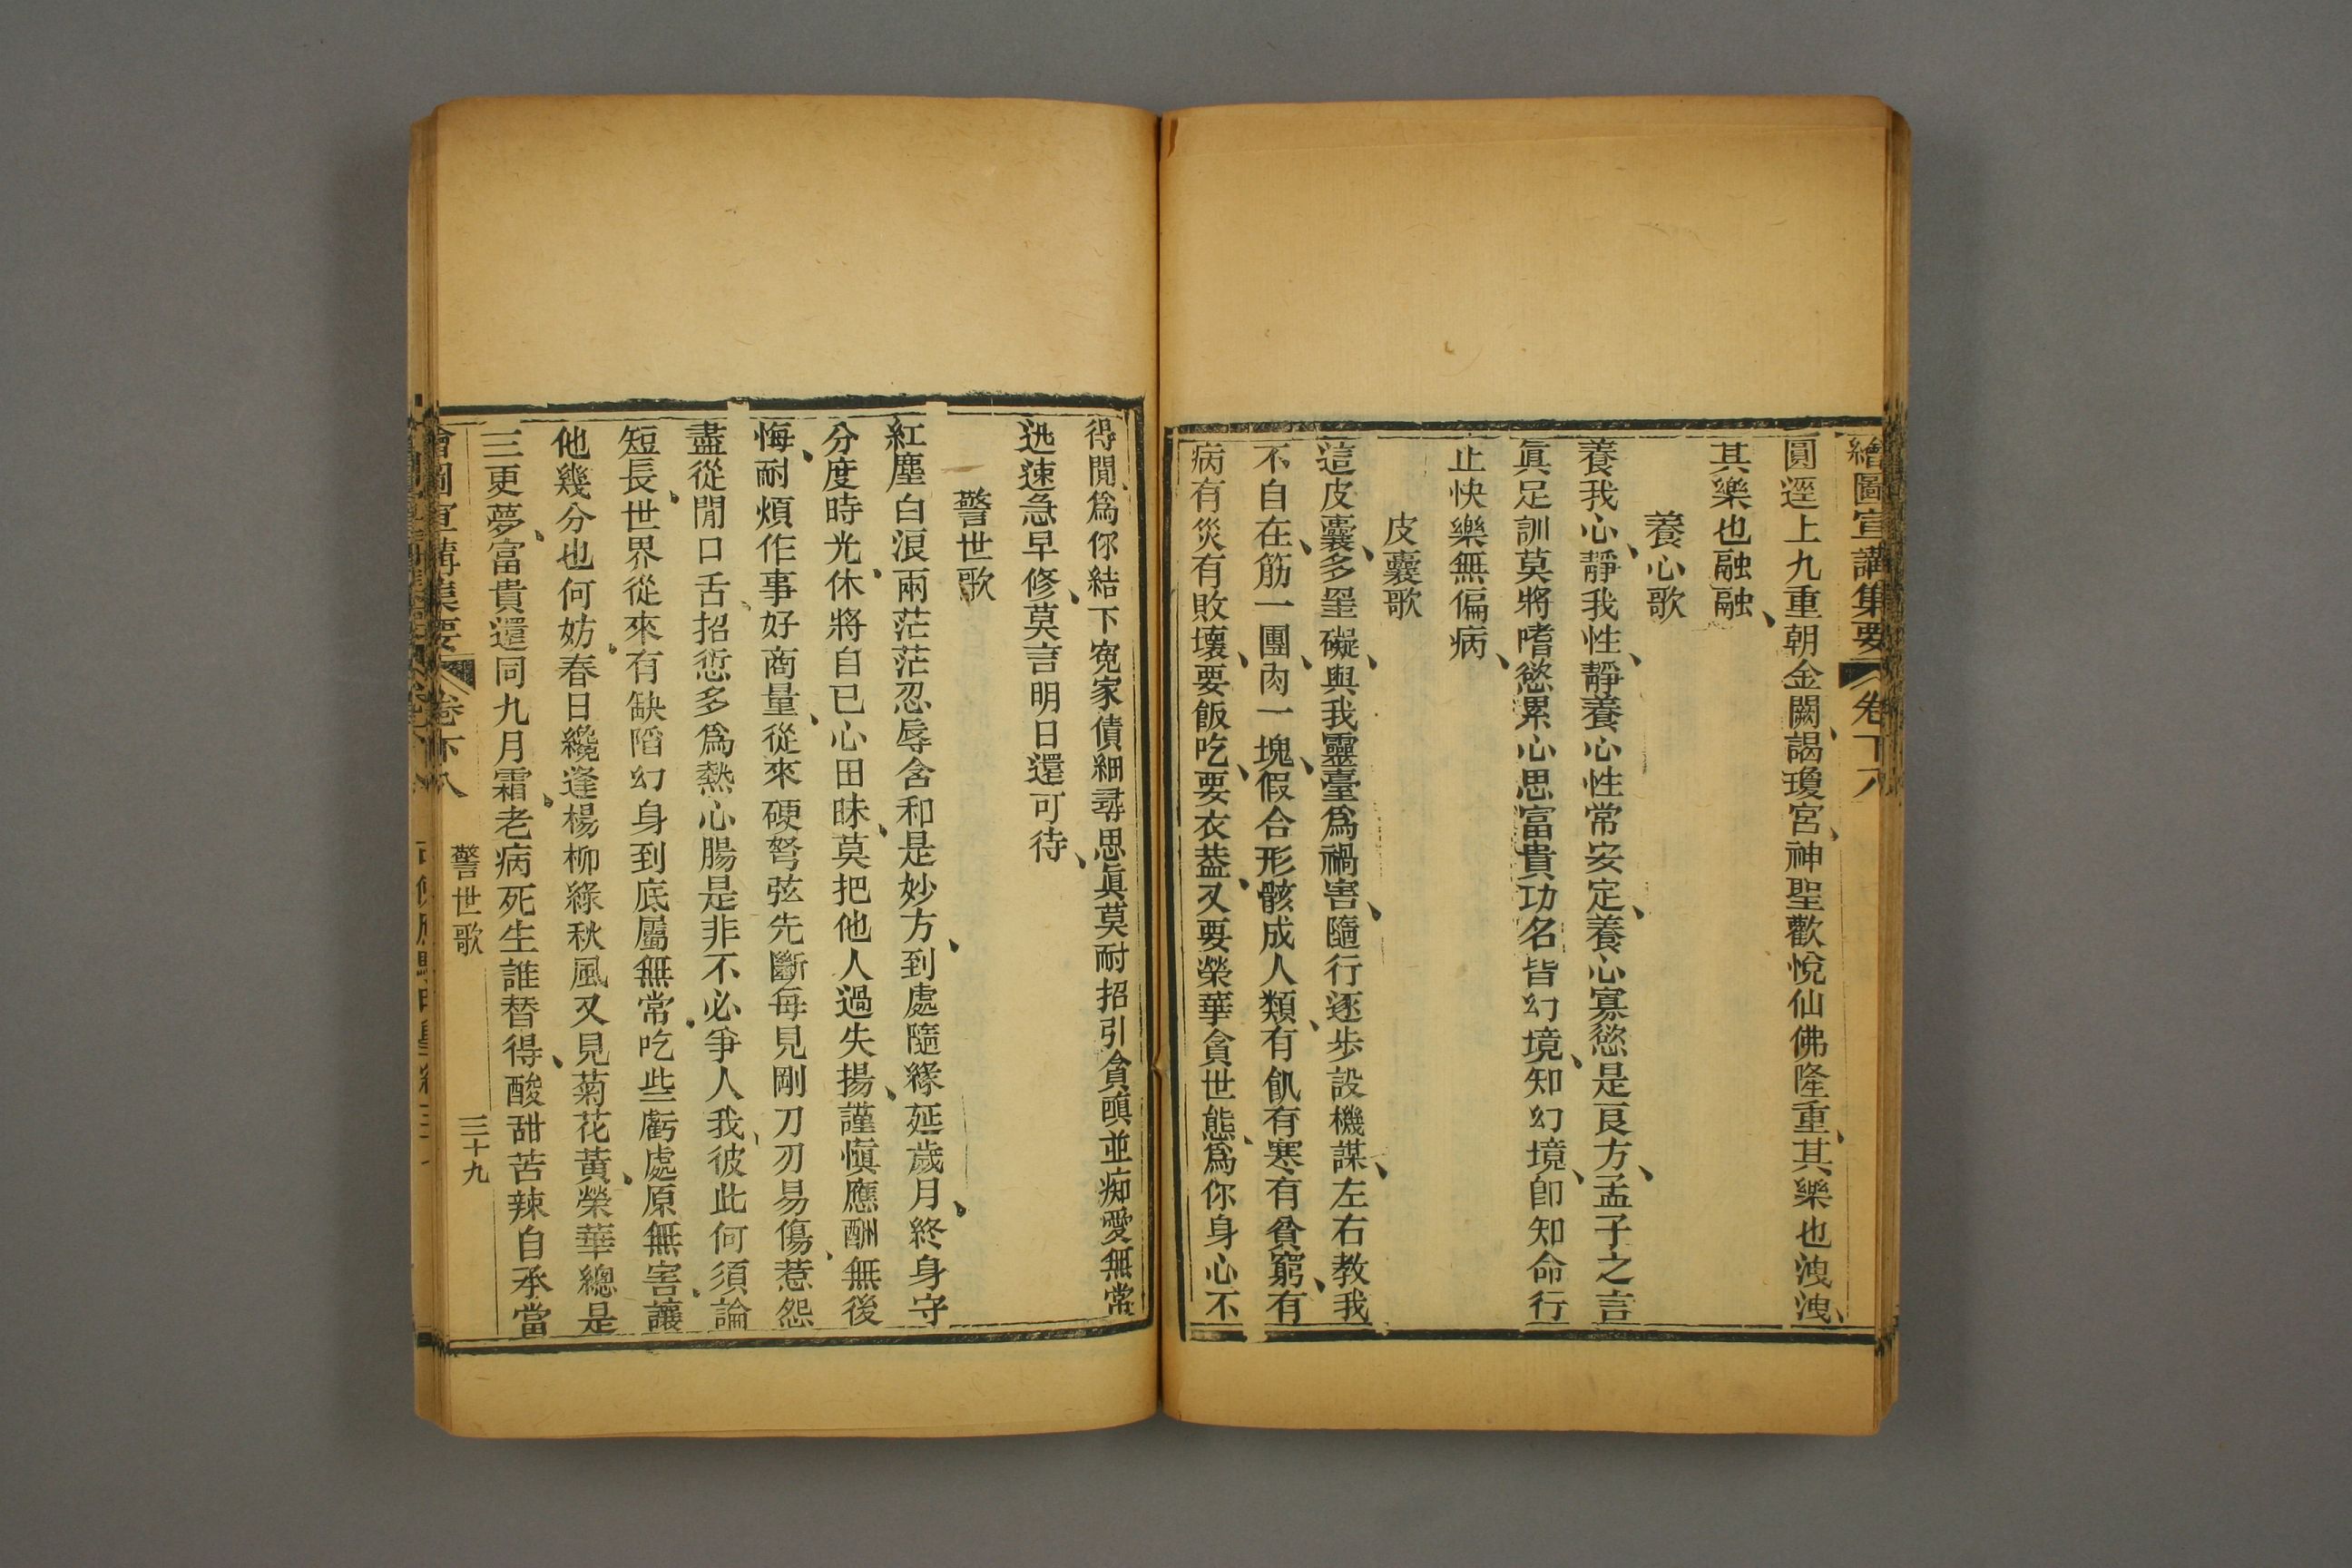 繪圖宣講集要 卷下八
圓逕上九重朝金闕、謁瓊宮、神聖歡悅仙佛隆重、其樂也洩洩、
其樂也融融、
養心歌
養我心、靜我性、靜養心性常安定、養心寡慾是良方、孟子之言
眞足訓莫將嗜慾累心思富貴功名皆幻境、知幻境、卽知命行
止快樂無偏病、
皮囊歌
這皮囊、多罣礙、與我靈臺爲禍害、隨行逐步設機謀、左右教我
不自在、筋一團、肉一塊、假合形骸成人類、有飢有寒有貧窮、有
病有災有敗壞、要飯吃、要衣葢、又要榮華貪世態、爲你身心不
得閒、爲你結下寃家債細尋思眞莫耐招引貪嗔並痴愛無常
迅速急早修、莫言明日還可待、
警世歌
紅塵白浪兩茫茫忍辱含和是妙方、到處隨緣延歲月、終身守
分度時光、休將自己心田昧、莫把他人過失揚、謹愼應酬無後
悔、耐煩作事好商量、從來硬弩弦先斷每見剛刀刃易傷、惹怨
盡從閒口舌、招愆多爲熱心腸是非不必爭人我、彼此何須論
短長、世界從來有缺陷幻身到底屬無常、吃些虧處原無害、讓
他幾分也何妨、春日纔逢楊柳綠秋風又見菊花黃、榮華總是
三更夢、富貴還同九月霜、老病死生誰替得、酸甜苦辣自承當
繪圖宣講集要 卷下八 警世歌 三十九